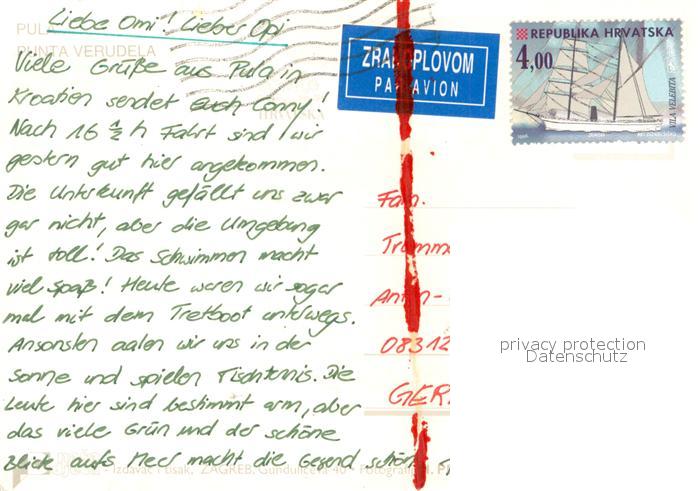 PULA
PUNTA VERUDELA
Liebe Omi! Lieber Opi
Viele Grüße aus Pula in
Kroatien sendet Euch Conny!
Nach 16 ½ h Fahrt sind wir
gestern gut hier angekommen.
Die Unterkunft gefällt uns zwar
gar nicht, aber die Umgebung
ist toll! Das Schwimmen macht
viel Spaß! Heute waren wir sogar
mal mit dem Tretboot unterwegs.
Ansonsten aalen wir uns in der
Sonne und spielen Tischtennis. Die
Leute hier sind bestimmt arm, aber
das viele Grün und der schöne
Blick aufs Meer macht die Gegend schön
Izdavač i tisak, ZAGREB, Gundulićeva 40
ZRAKOPLOVOM
PAR AVION
REPUBLIKA HRVATSKA
4,00
VILA VELEBITA
Fam.
Anton-
08312
GER
privacy protection
Datenschutz